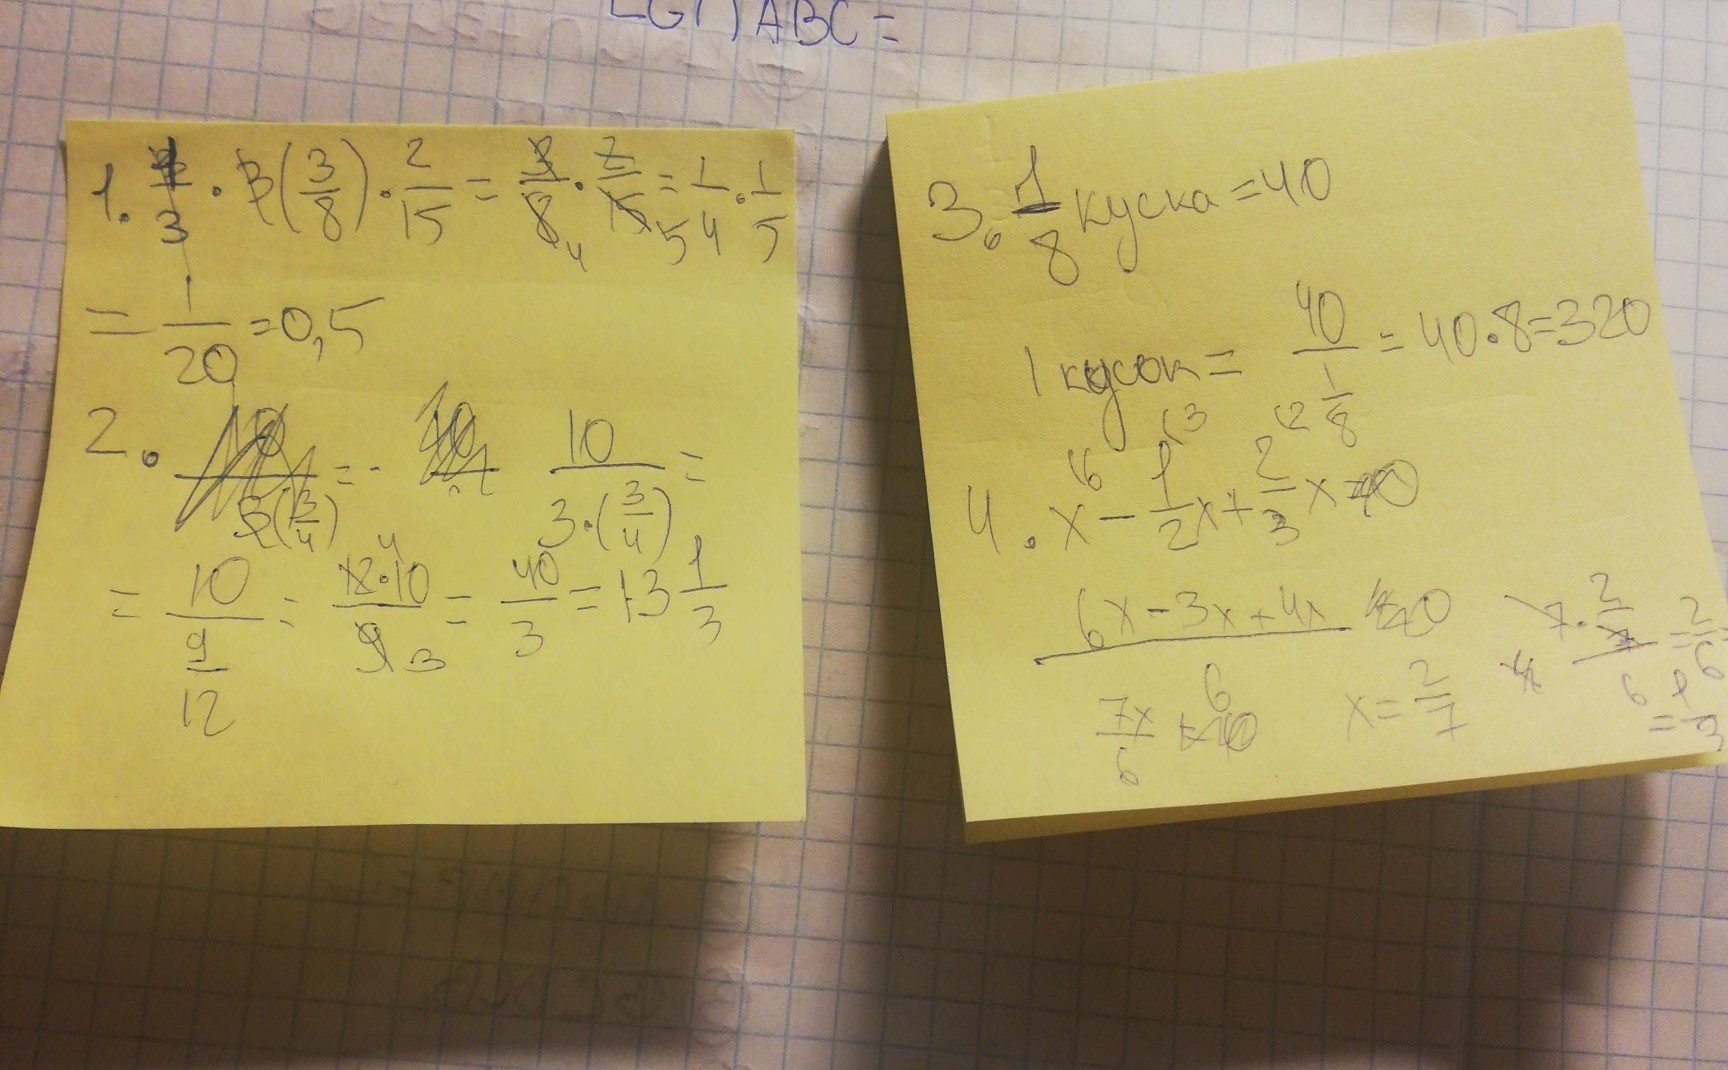 ABC =
1. 1/3 · 3(3/8) · 2/15 = 3/8 4 · 2/15 5 = 1/4 · 1/5
= 1/20 = 0,5
2. 10/(3·(3/4)) =
= 10/(9/12) = 12·10/9 4 3 = 40/3 = 13 1/3
3. 1/8 куска = 40
1 кусок = 40/(1/8) = 40·8=320
4. x - 1/2 x + 2/3 x
(6 (3 (2
(6x - 3x + 4x)/6
7x/6 x = 2/7
7 · 2/7 6 = 2/6 = 1/3